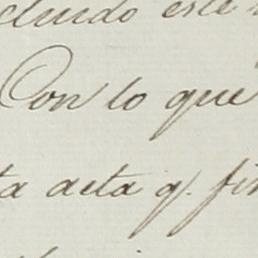 cluido este
Con lo que
ta acta q. fir